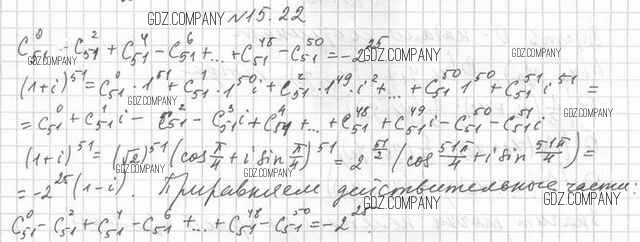 GDZ.COMPANY №15.22
C₅₁⁰ - C₅₁² + C₅₁⁴ - C₅₁⁶ + ... + C₅₁⁴⁸ - C₅₁⁵⁰ = -2²⁵
GDZ.COMPANY GDZ.COMPANY
(1+i)⁵¹ = C₅₁⁰·1⁵¹ + C₅₁¹·1⁵⁰i + C₅₁²·1⁴⁹·i² + ... + C₅₁⁵⁰1⁵⁰ + C₅₁⁵¹i⁵¹ =
GDZ.COMPANY GDZ.COMPANY
= C₅₁⁰ + C₅₁¹i - C₅₁² - C₅₁³i + C₅₁⁴ + ... + C₅₁⁴⁸ + C₅₁⁴⁹i - C₅₁⁵⁰ - C₅₁⁵¹i
(1+i)⁵¹ = (√2)⁵¹(cos π/4 + i sin π/4)⁵¹ = 2^(51/2) (cos 51π/4 + i sin 51π/4) =
GDZ.COMPANY GDZ.COMPANY
= -2²⁵(1-i). Приравняем действительные части:
GDZ.COMPANY GDZ.COMPANY
C₅₁⁰ - C₅₁² + C₅₁⁴ - C₅₁⁶ + ... + C₅₁⁴⁸ - C₅₁⁵⁰ = -2²⁵.
GDZ.COMPANY